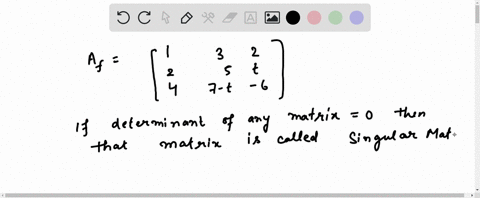 A_f = [ 1 3 2
2 5 t
4 7-t -6 ]
If determinant of any matrix = 0 then
that matrix is called Singular Mat